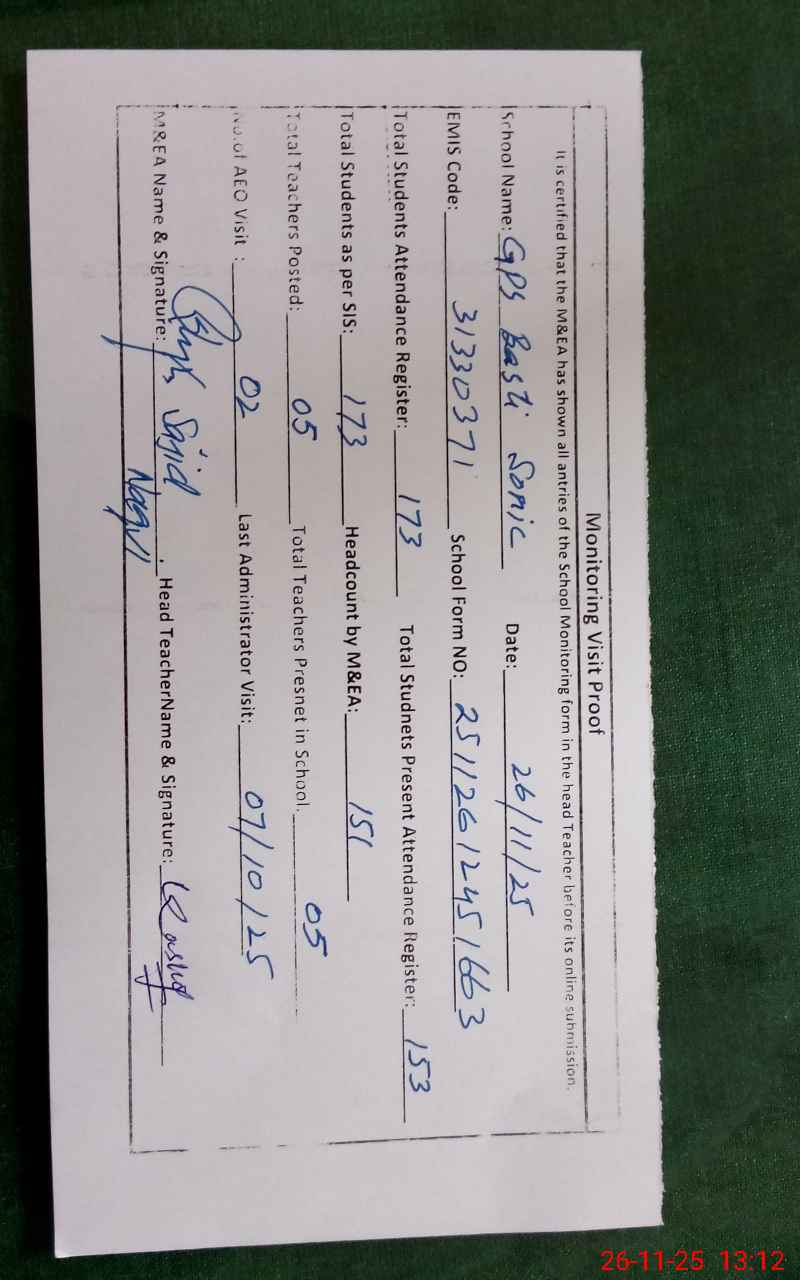 Monitoring Visit Proof
It is certified that the M&EA has shown all antries of the School Monitoring form in the head Teacher before its online submission.
School Name: GPS Basti Sonic Date: 26/11/25
EMIS Code: 31330371 School Form NO: 251126124516 63
Total Students Attendance Register: 173 Total Studnets Present Attendance Register: 153
Total Students as per SIS: 173 Headcount by M&EA: 151
Total Teachers Posted: 05 Total Teachers Presnet in School. 05
No.of AEO Visit : 02 Last Administrator Visit: 07/10/25
M&EA Name & Signature: Sajid . Head TeacherName & Signature: Kashif
Naqvi
26-11-25 13:12